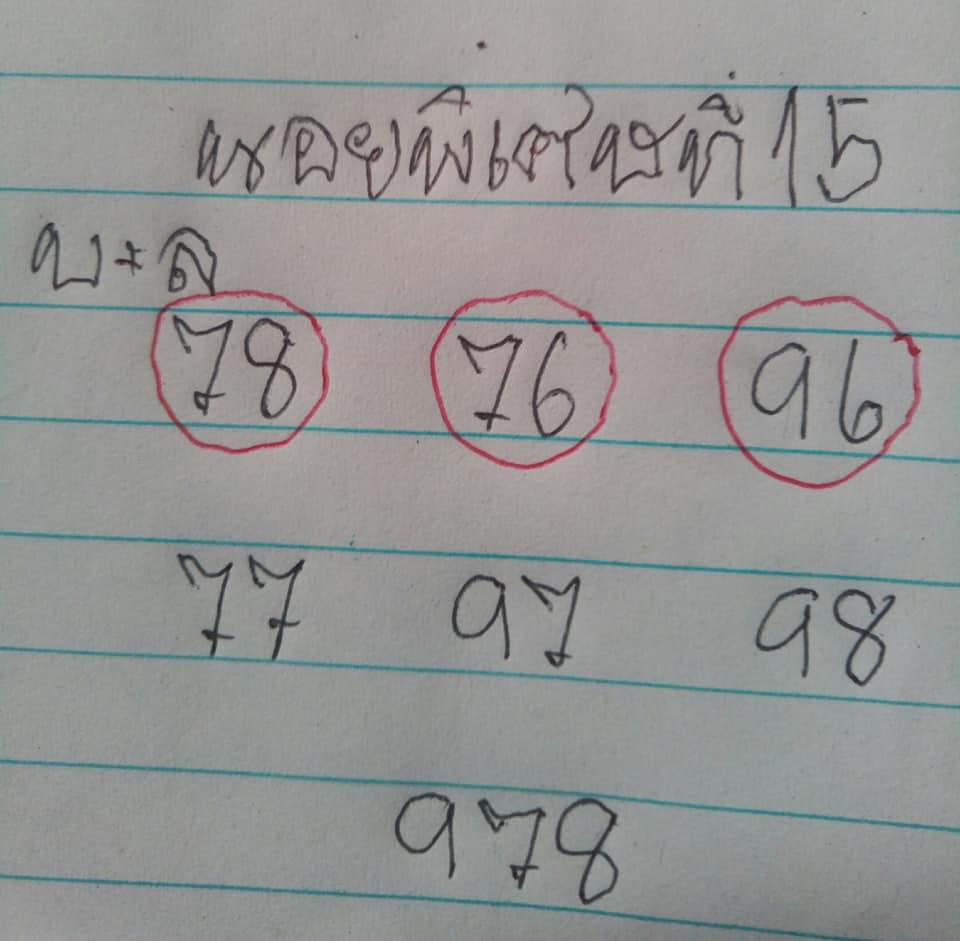 หรอยพิเศษที่ 15
บ+ล
78 76 96
77 97 98
978